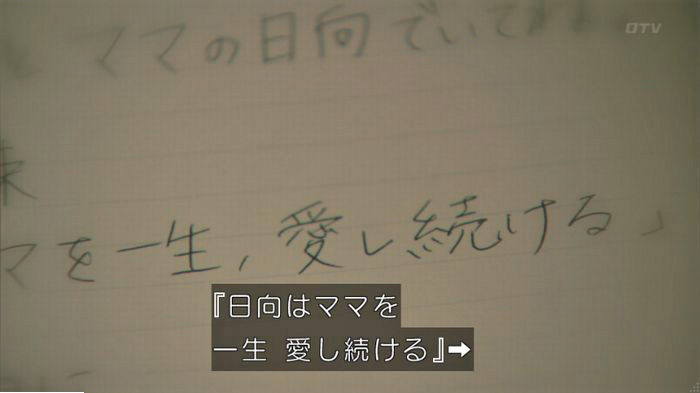 OTV
ママの日向でいて
束
マを一生、愛し続ける」
『日向はママを
一生 愛し続ける』➡